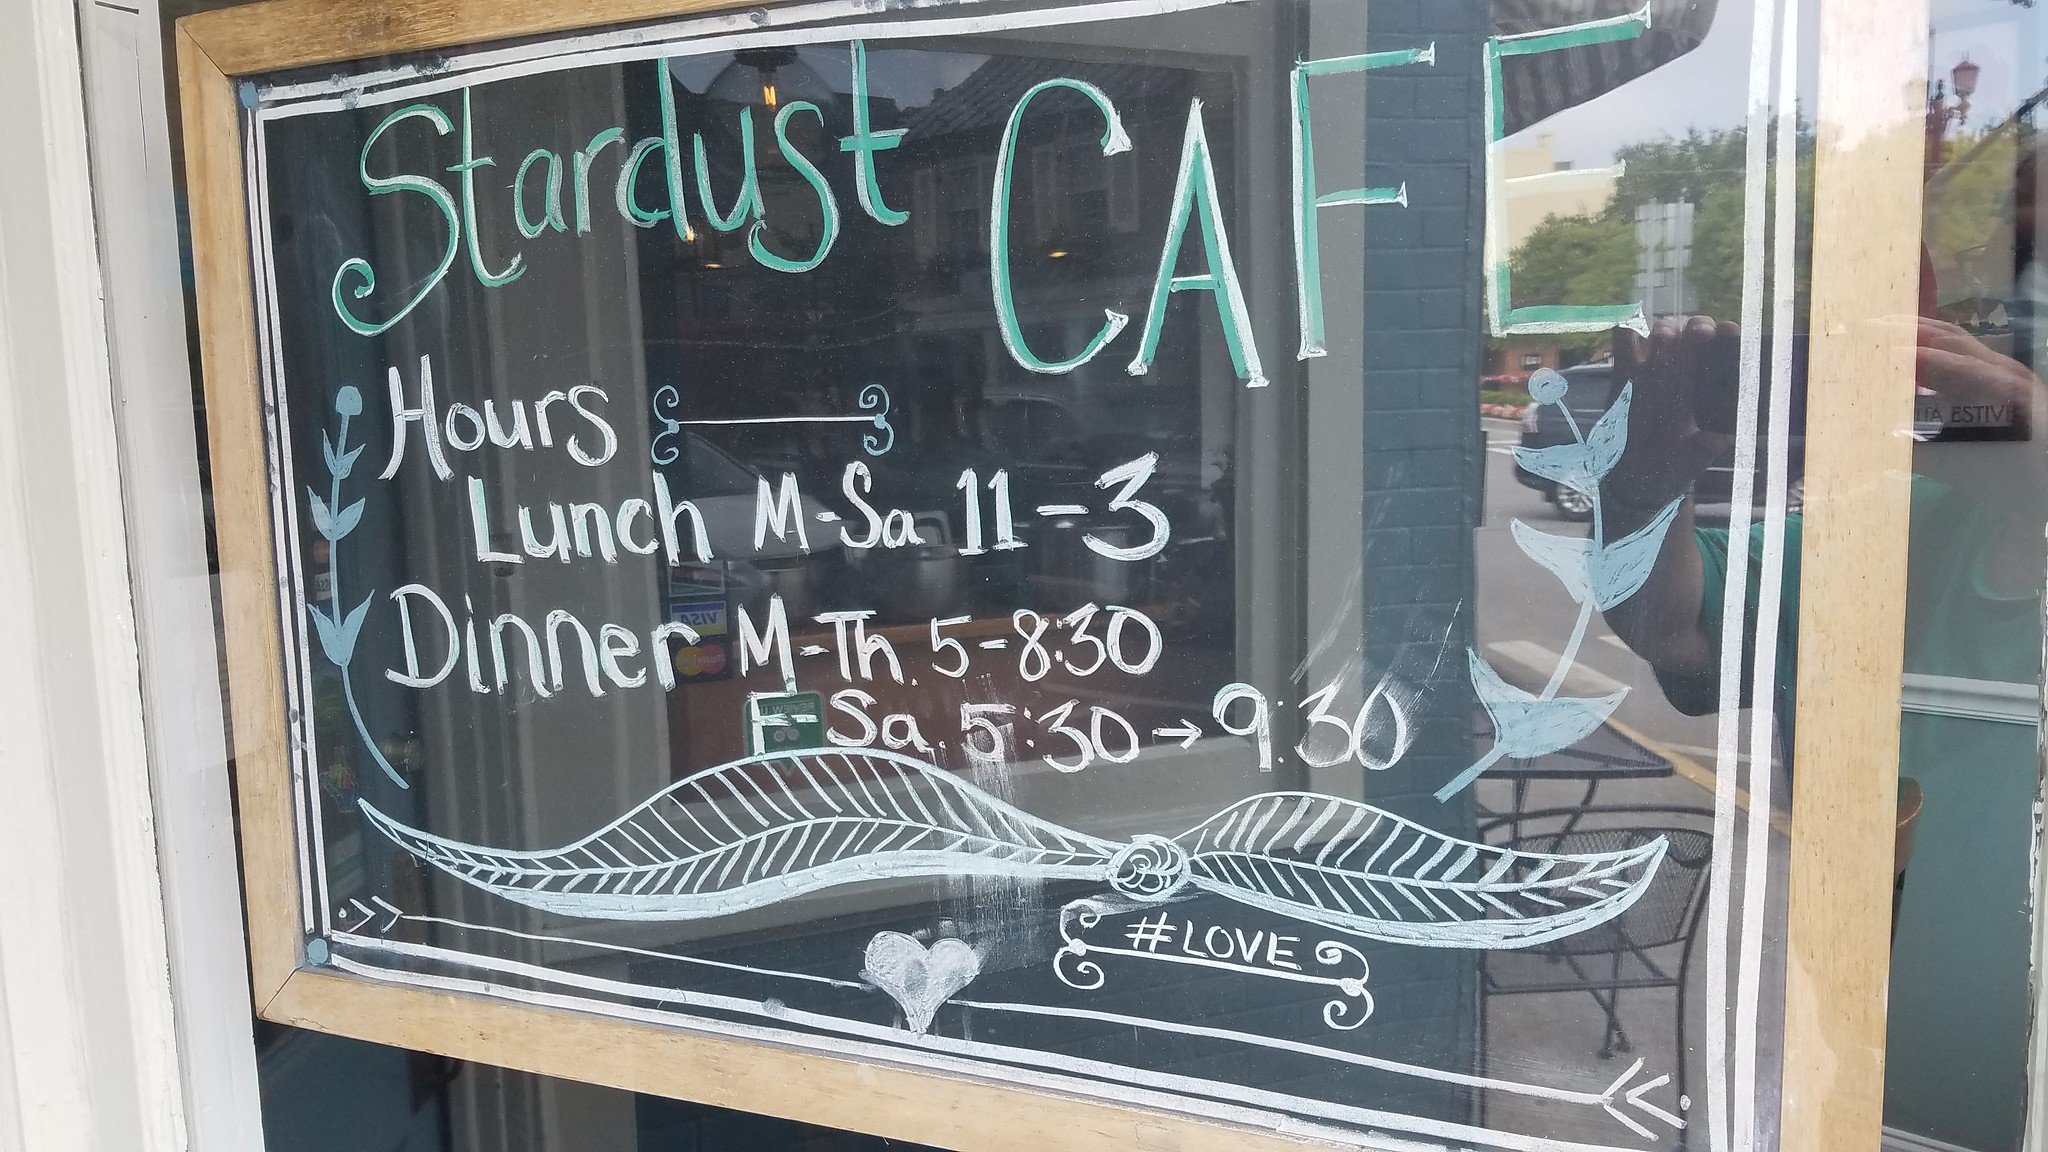 Stardust CAFE
Hours
Lunch M-Sa 11-3
Dinner M-Th. 5-8:30
F-Sa. 5:30→9:30
#LOVE
VISA